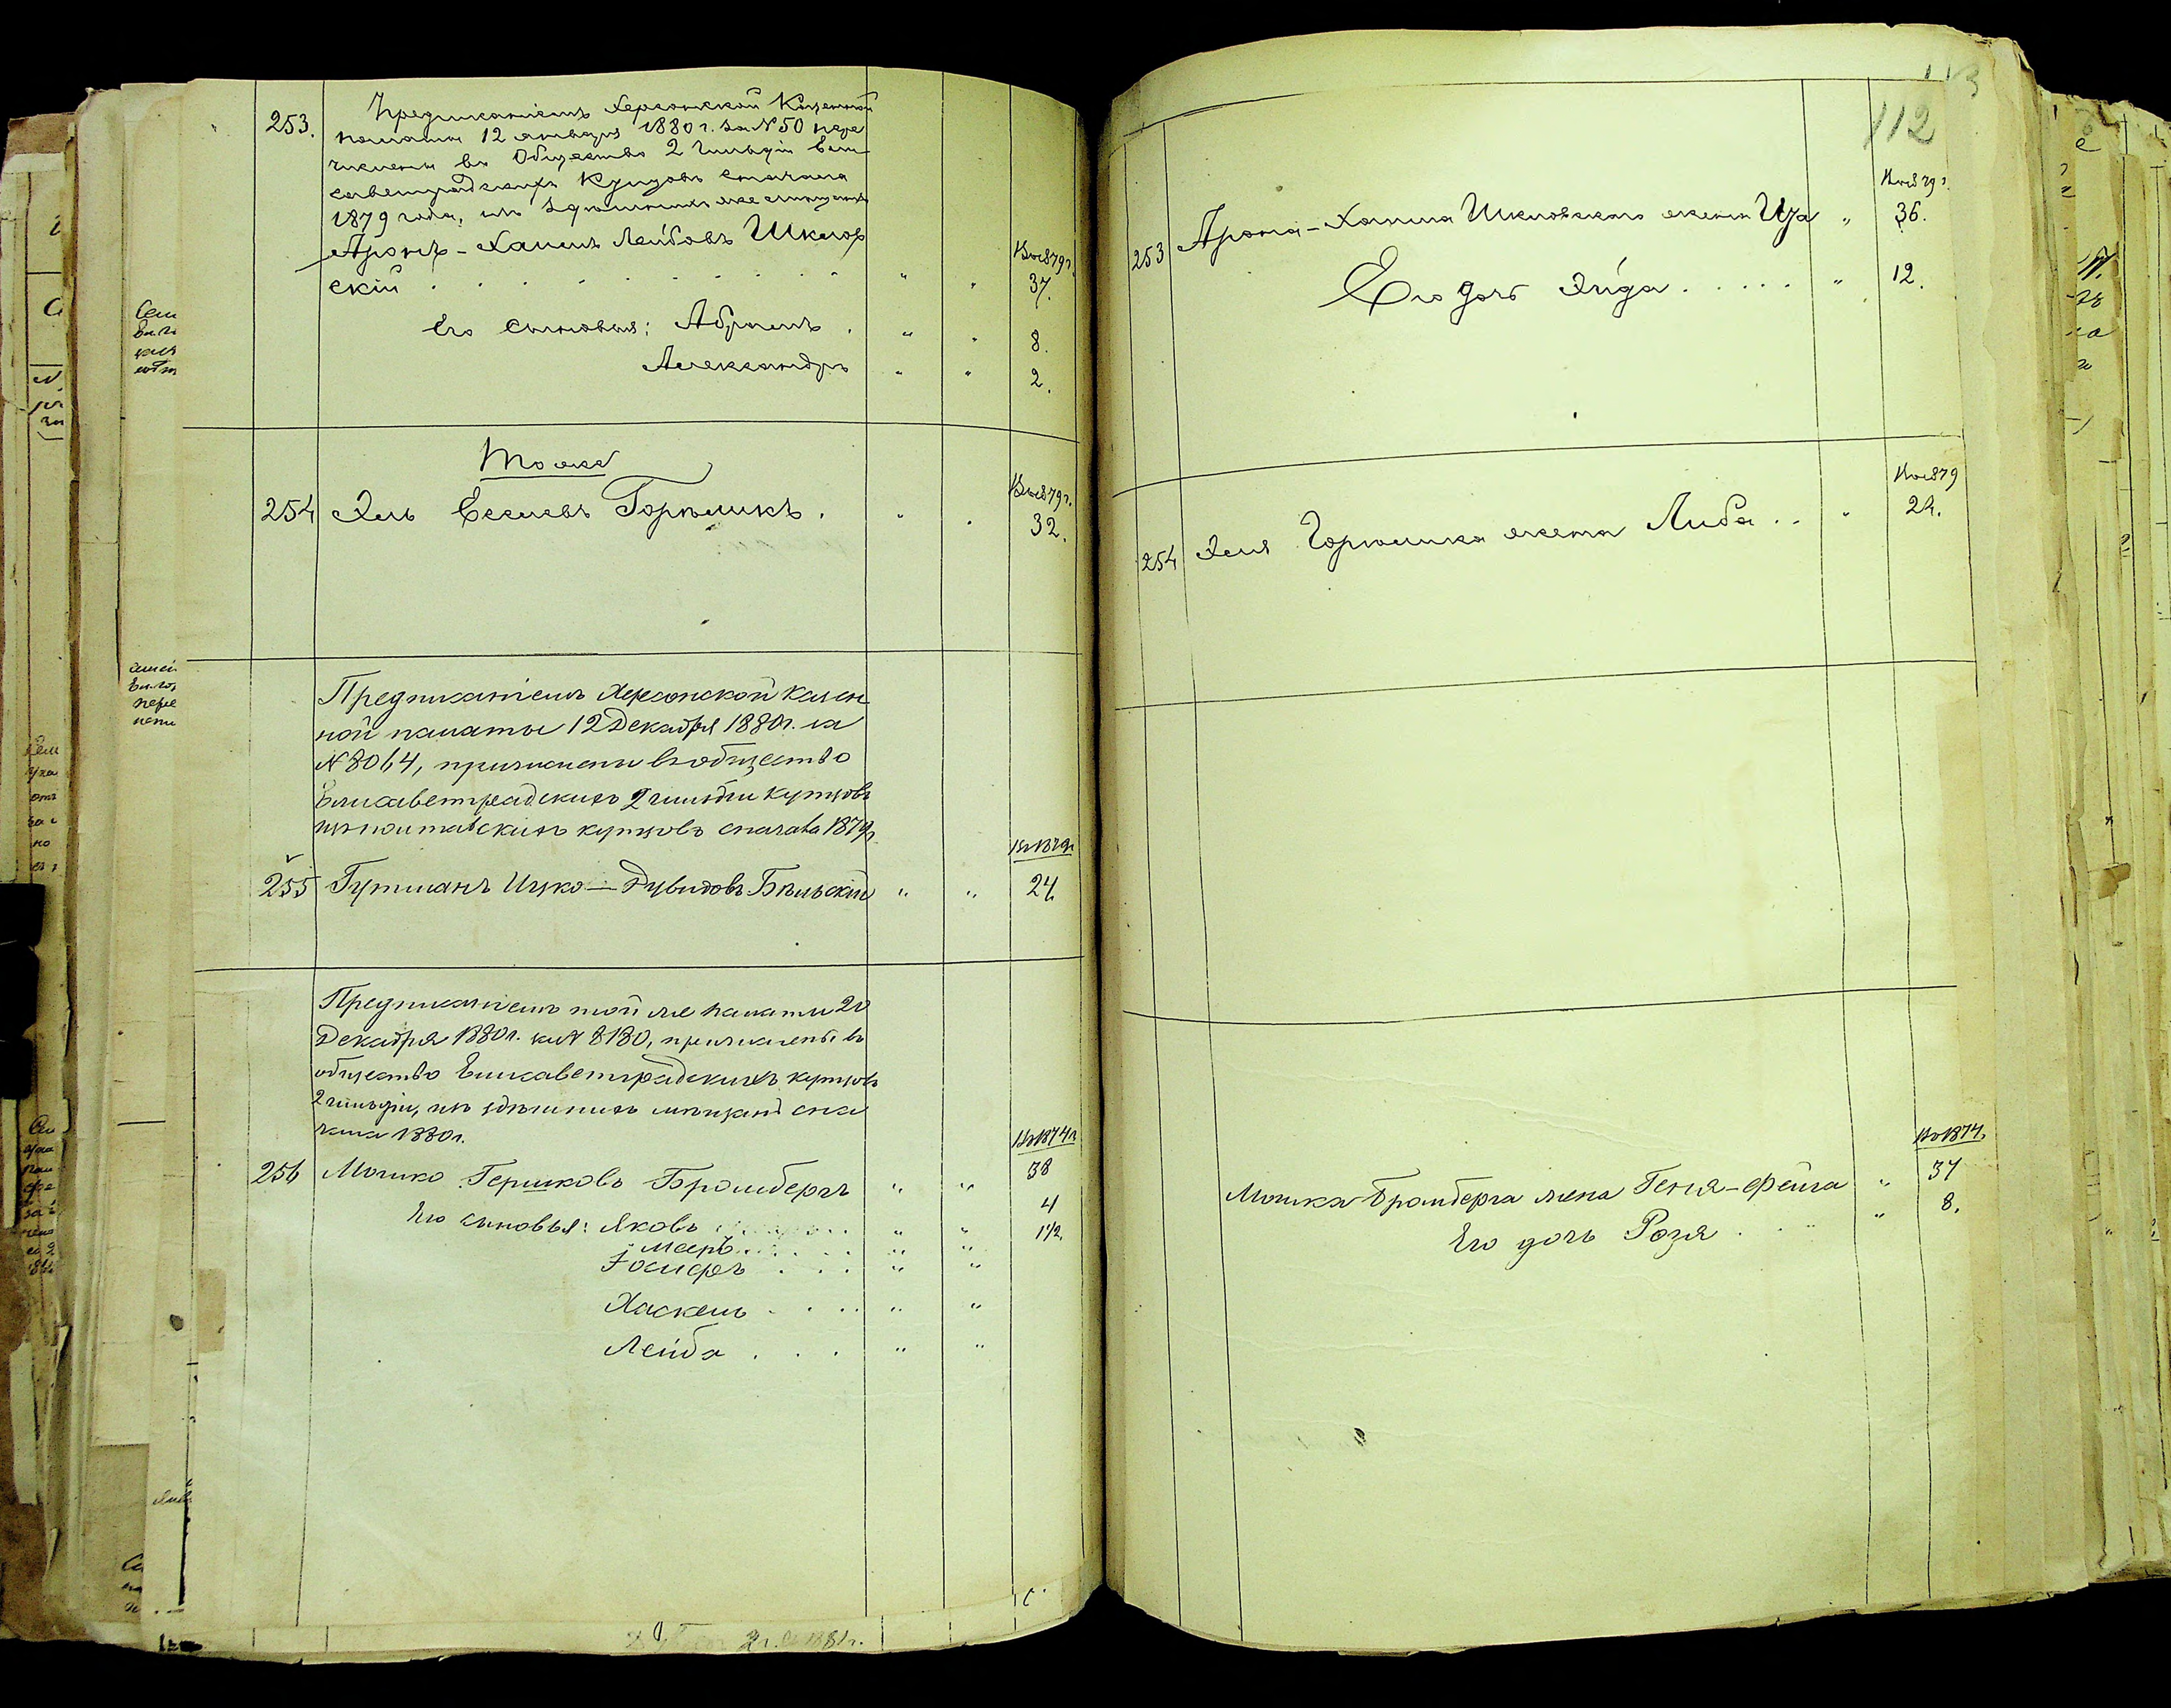 253. Предписаніемъ Херсонской Казенной
палаты 12 января 1880 г. за № 50 пере
числены въ Общество 2 гильдіи Ели
саветградскихъ Купцовъ сначала
1879 года, изъ здѣшнихъ же мѣщанъ
Аронъ-Хаимъ Лейбовъ Шклов
скій . . . . . . . " " Въ 1879 г. 37.
Его сыновья: Абрамъ . " " 8.
Александръ " " 2.
Тоже
254 Хель Евелевъ Горѣликъ . " . Въ 1879 г. 32.
Предписаніемъ Херсонской казен
ной палаты 12 Декабря 1880 г. за
№ 8064, причислены въ общество
Елисаветградскихъ 2 гильдіи купцовъ
изъ полтавскихъ купцовъ сначала 1879 г.
Въ 1879 г.
255 Гутманъ Ицко-Дувидовъ Бѣльскій " " 24
Предписаніемъ той же палаты 20
Декабря 1880 г. за № 8180, причислены въ
общество Елисаветградскихъ купцовъ
2 гильдіи, изъ здѣшнихъ мѣщанъ сна
чала 1880 г.
Въ 1874 г.
256 Мошко Гершковъ Бромбергъ " " 38
Его сыновья: Яковъ " " 4
Мееръ . . . . . " " 1½.
Іосифъ . . . " "
Хаскель . . . . " "
Лейба . . . " "
2 г. 1881 г.
113
112
Въ 1879 г.
253 Арона-Хаима Шкловскаго жена Иза " 36.
Его дочь Хида . . . . . " 12.
Въ 1879
254 Хеля Горѣлика жена Либа . . " 22.
Въ 1874.
Мошка Бромберга жена Геня-Фейга " 37
Его дочь Розя . . " 8.